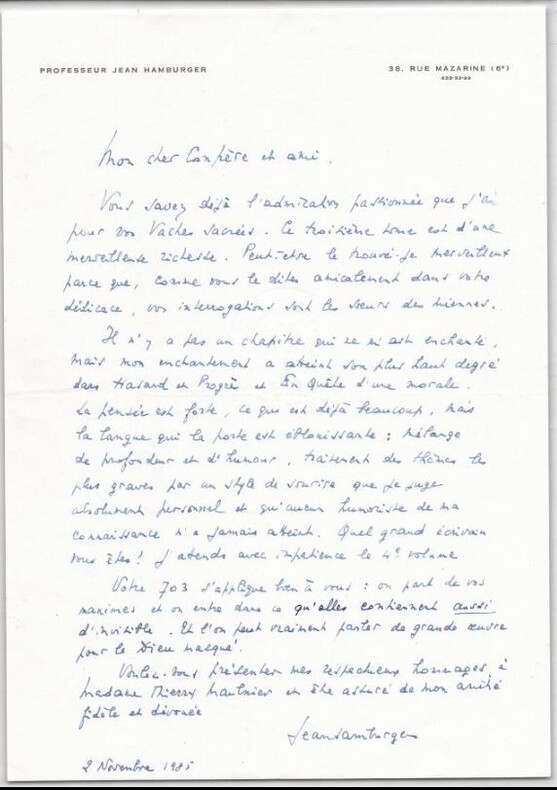 PROFESSEUR JEAN HAMBURGER
38, RUE MAZARINE (6e)
Mon cher Confrère et ami,
Vous savez déjà l'admiration passionnée que j'ai
pour vos Vaches sacrées. Ce troisième tome est d'une
merveilleuse richesse. Peut-être le trouvé-je merveilleux
parce que, comme vous le dites amicalement dans votre
dédicace, vos interrogations sont les sœurs des miennes.
Il n'y a pas un chapitre qui ne m'ait enchanté,
mais mon enchantement a atteint son plus haut degré
dans Hasard et Progrès et En Quête d'une morale.
La pensée est forte, ce qui est déjà beaucoup, mais
la langue qui la porte est éblouissante : mélange
de profondeur et d'humour, traitement des thèmes les
plus graves par un style de sourire que je juge
absolument personnel et qu'aucun humoriste de ma
connaissance n'a jamais atteint. Quel grand écrivain
vous êtes ! J'attends avec impatience le 4e volume.
Votre 703 s'applique bien à vous : on part de vos
maximes et on entre dans ce qu'elles contiennent aussi
d'invisible. Et l'on peut vraiment parler de grande œuvre
pour le Dieu masqué.
Voulez-vous présenter mes respectueux hommages à
Madame Thierry Maulnier et être assuré de mon amitié
fidèle et dévouée
Jean Hamburger
2 Novembre 1985